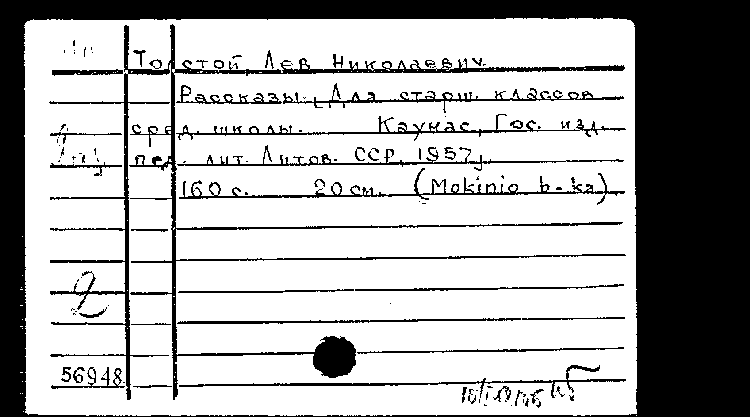 Толстой, Лев Николаевич.
Рассказы. [Для старш. классов
сред. школы. Каунас, Гос. изд.
пед. лит. Литов. ССР, 1957].
160 с. 20 см. (Mokinio b-ka)
2
56948